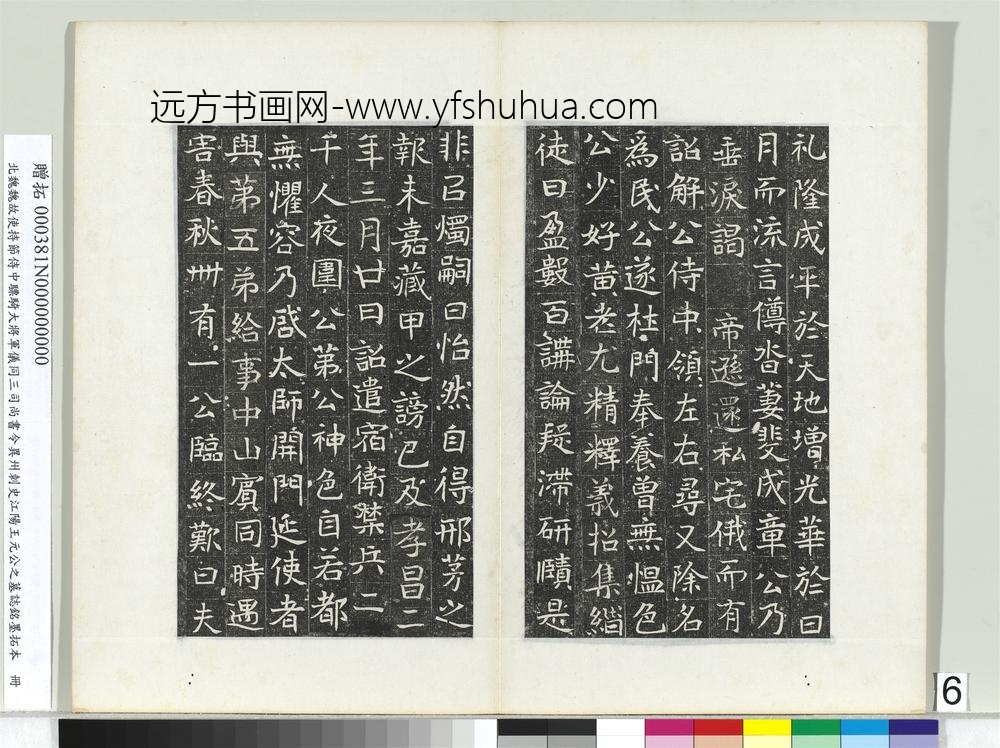 远方书画网-www.yfshuhua.com
礼隆成平於天地增光華於日
月而流言僔沓萋斐成章公乃
垂淚謁 帝遜還私宅俄而有
詔解公侍中領左右尋又除名
爲民公遂杜門奉養曾無慍色
公少好黄老尤精釋義招集緇
徒日盈數百講論疑滯研賾是
非召燭嗣日怡然自得邢芳之
報未嘉藏甲之謗已及孝昌二
年三月廿日詔遣宿衛禁兵二
千人夜圍公第公神色自若都
無懼容乃啓太師開門延使者
與第五弟給事中山賓同時遇
害春秋卌有一公臨終歎曰夫
贈拓 000381N000000000
北魏魏故使持節侍中驃騎大將軍儀同三司尚書令冀州刺史江陽王元公之墓誌銘墨拓本 冊
6